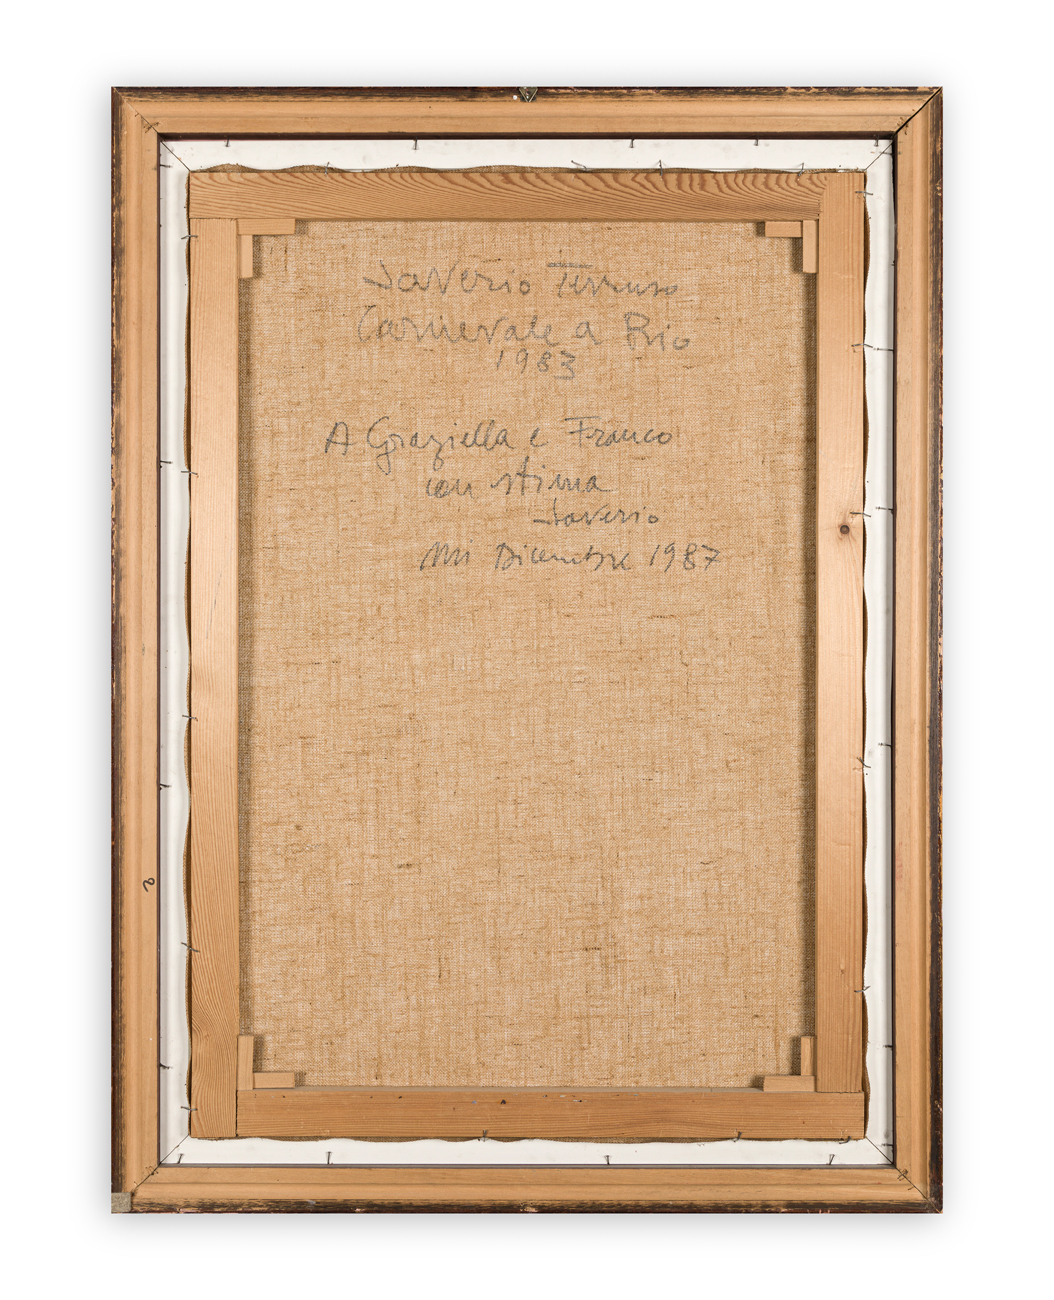 Saverio Terruso
Carnevale a Rio
1983
A Graziella e Franco
con stima
Saverio
Mi Dicembre 1987
2